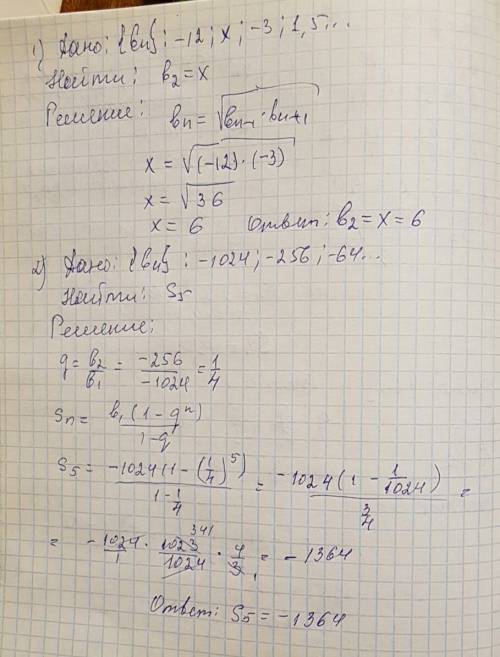 1) Дано: {bn}: -12; x; -3; 1,5...
Найти: b₂ = x
Решение: bn = √(bn-1 · bn+1)
x = √((-12)·(-3))
x = √36
x = 6 Ответ: b₂ = x = 6
2) Дано: {bn}: -1024; -256; -64...
Найти: S₅
Решение:
q = b₂/b₁ = -256/-1024 = 1/4
Sn = b₁(1-qⁿ)/1-q
S₅ = -1024(1-(1/4)⁵)/1-1/4 = -1024(1-1/1024)/3/4 =
= -1024/1 · 1023/1024 341 · 4/3 1 = -1364
Ответ: S₅ = -1364